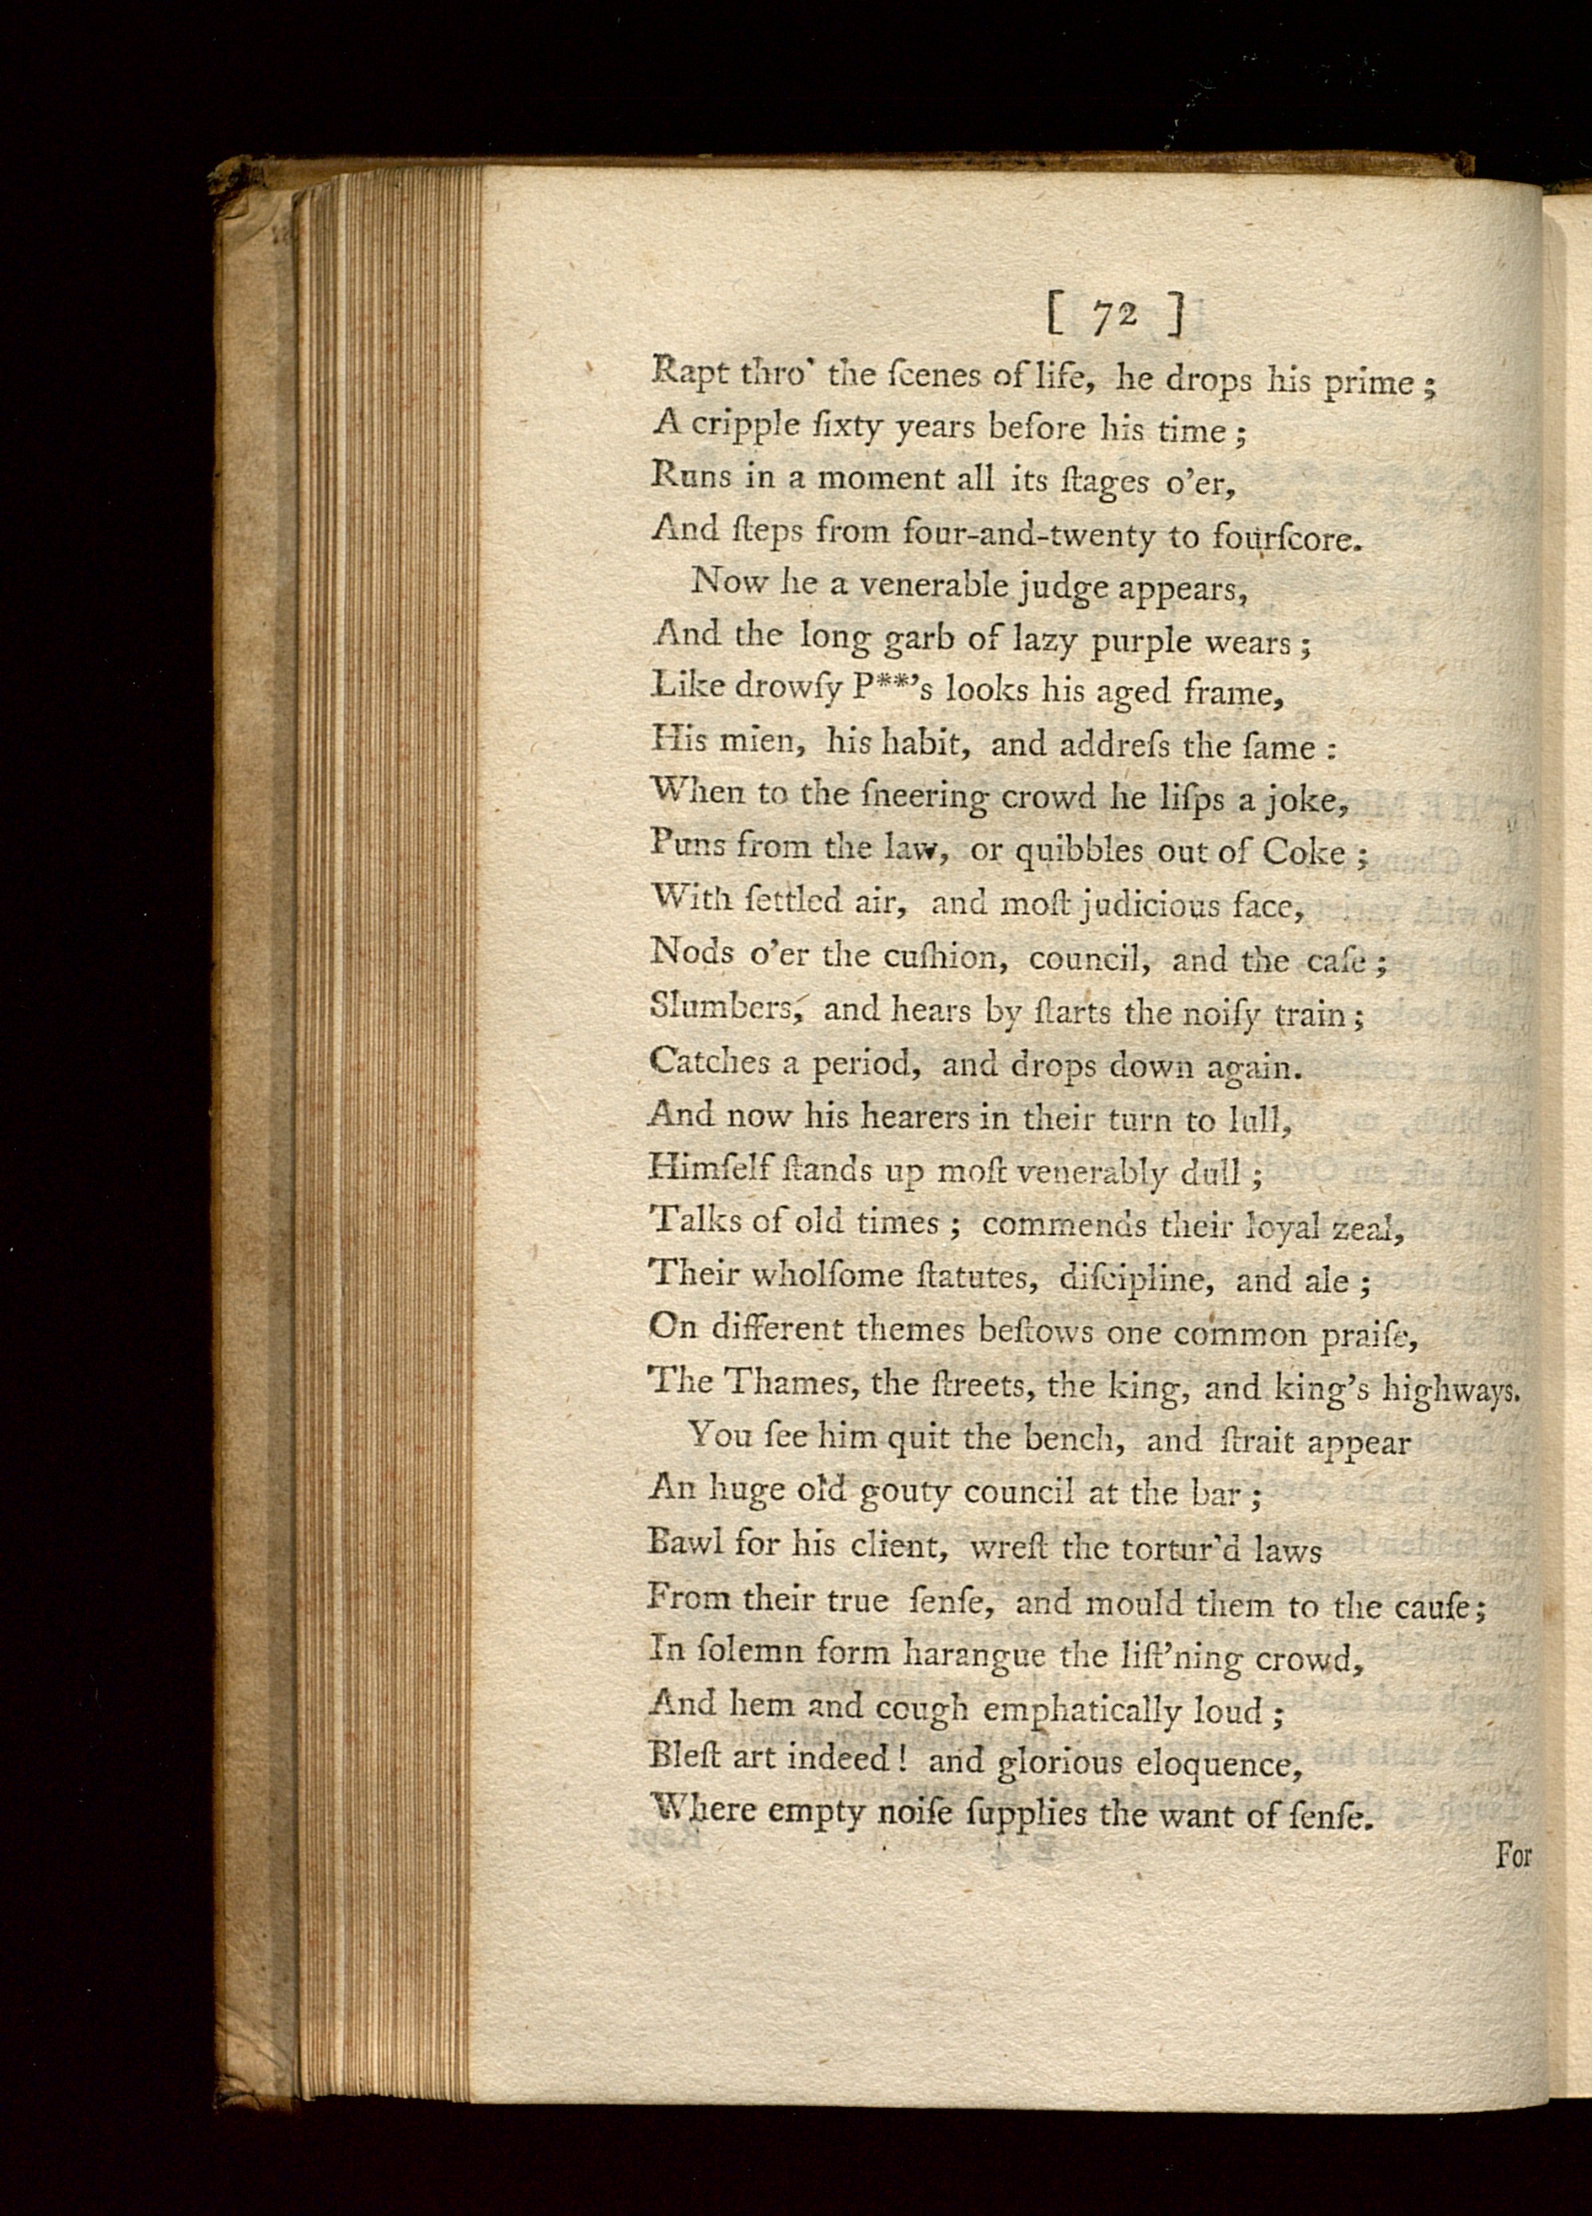 [ 72 ]
Rapt thro' the ſcenes of life, he drops his prime;
A cripple ſixty years before his time;
Runs in a moment all its ſtages o'er,
And ſteps from four-and-twenty to fourſcore.
Now he a venerable judge appears,
And the long garb of lazy purple wears;
Like drowſy P**'s looks his aged frame,
His mien, his habit, and addreſs the ſame:
When to the ſneering crowd he liſps a joke,
Puns from the law, or quibbles out of Coke;
With ſettled air, and moſt judicious face,
Nods o'er the cuſhion, council, and the caſe;
Slumbers, and hears by ſtarts the noiſy train;
Catches a period, and drops down again.
And now his hearers in their turn to lull,
Himſelf ſtands up moſt venerably dull;
Talks of old times; commends their loyal zeal,
Their wholſome ſtatutes, diſcipline, and ale;
On different themes beſtows one common praiſe,
The Thames, the ſtreets, the king, and king's highways.
You ſee him quit the bench, and ſtrait appear
An huge old gouty council at the bar;
Bawl for his client, wreſt the tortur'd laws
From their true ſenſe, and mould them to the cauſe;
In ſolemn form harangue the liſt'ning crowd,
And hem and cough emphatically loud;
Bleſt art indeed! and glorious eloquence,
Where empty noiſe ſupplies the want of ſenſe.
For